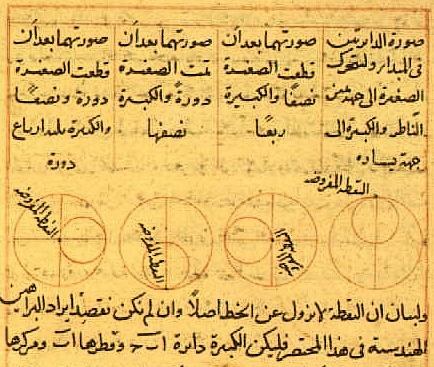 صورة الدايرتين
فى المبدا ولتتحرك
الصغيرة الى جهة يمين
الناظر والكبيرة الى
جهة يساره
صورتهما بعد ان
قطعت الصغيرة
نصفًا والكبيرة
ربعًا
صورتهما بعد ان
تمت الصغيرة
دورةً والكبيرة
نصفها
صورتهما بعد ان
قطعت الصغيرة
دورة ونصفًا
والكبيرة ارباع
دورة
النقطة المفروضة
النقطة المفروضة
النقطة المفروضة
ولبيان ان النقطة لا تزول عن الخط اصلًا وان لم نكن نقصد ايراد البراهين
الهندسية فى هذا المختصر فليكن الكبيرة دائرة اب وقطرها اب ومركزها